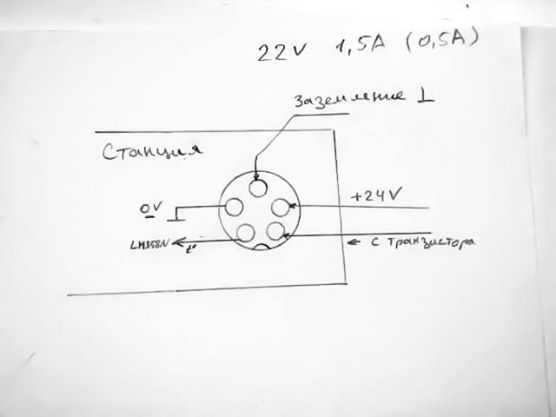 22V 1,5A (0,5A)
Заземление ⊥
Станция
0V
+24V
LM358N
t°
с транзистора